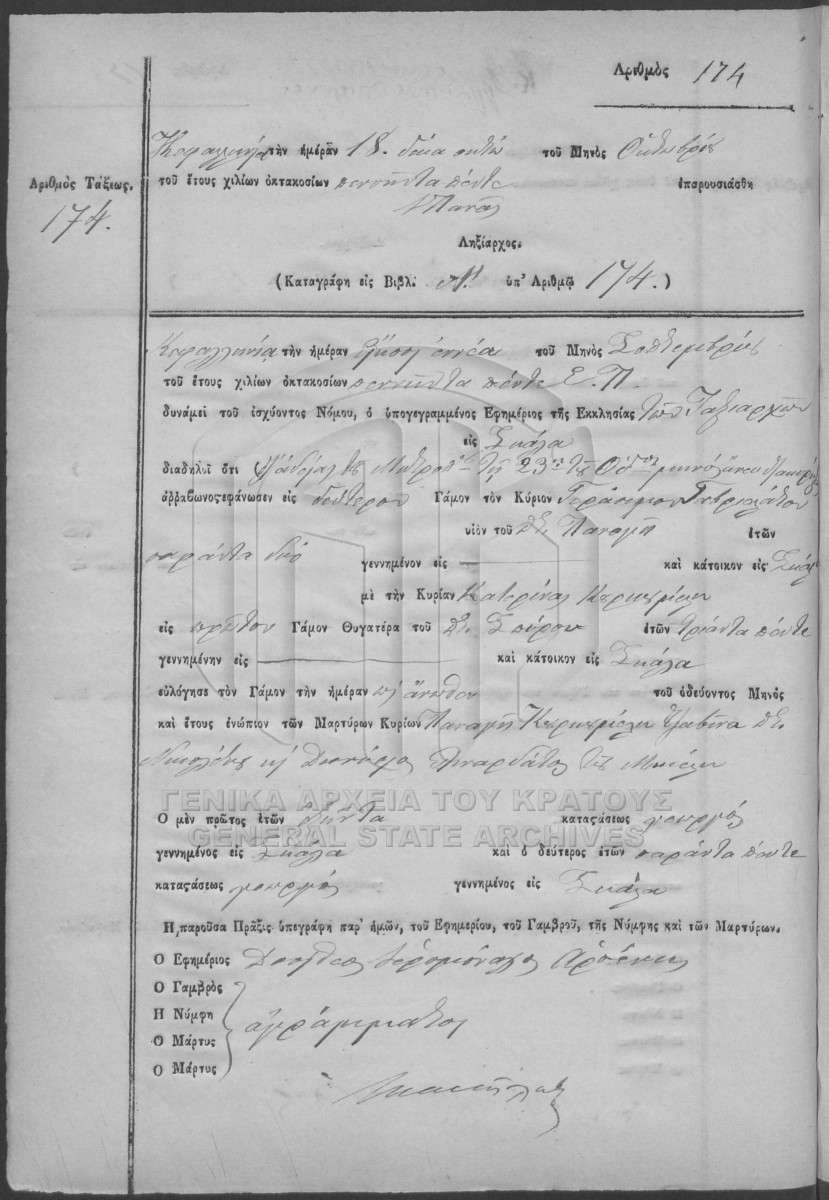 Ἀριθμὸς 174
Ἀριθμὸς Τάξεως.
174.
Κεφαλληνία τὴν ἡμέραν 18. δέκα οκτώ τοῦ Μηνὸς Οκτωβρίου
τοῦ ἔτους χιλίων ὀκτακοσίων πεννῆντα πέντε ἐπαρουσιάσθη
Ληξίαρχος.
(Καταγράφη εἰς Βιβλ: ὑπ' Ἀριθμῷ 174.)
Κεφαλληνία τὴν ἡμέραν εἴκοσι εννέα τοῦ Μηνὸς Σεπτεμβρίου
τοῦ ἔτους χιλίων ὀκτακοσίων πεννῆντα πέντε Ε. Π.
δυνάμει τοῦ ἰσχύοντος Νόμου, ὁ ὑπογεγραμμένος Ἐφημέριος τῆς Ἐκκλησίας τῶν Ταξιαρχῶν
εἰς Σκάλα
διαδηλοῖ ὅτι τῆς 23
ἀῤῥαβωνοςεφάνωσεν εἰς δεύτερον Γάμον τὸν Κύριον Γεράσιμον Γαβριελάτον
υἱὸν τοῦ Παναγῆ ἐτῶν
σαράντα δύο γεννημένον εἰς — καὶ κάτοικον εἰς Σκάλα
μὲ τὴν Κυρίαν Κατερίνα
εἰς πρῶτον Γάμον Θυγατέρα τοῦ Σπύρου ἐτῶν τριάντα πέντε
γεννημένην εἰς — καὶ κάτοικον εἰς Σκάλα
εὐλόγησε τὸν Γάμον τὴν ἡμέραν ὡς άνωθεν τοῦ ὁδεύοντος Μηνὸς
καὶ ἔτους ἐνώπιον τῶν Μαρτύρων Κυρίων Παναγῆ
ΓΕΝΙΚΑ ΑΡΧΕΙΑ ΤΟΥ ΚΡΑΤΟΥΣ
GENERAL STATE ARCHIVES
Ὁ μὲν πρῶτος ἐτῶν καταςάσεως γεωργός
γεννημένος εἰς Σκάλα καὶ ὁ δεύτερος ἐτῶν σαράντα πέντε
καταςάσεως γεωργός γεννημένος εἰς Σκάλα
Ἡ παροῦσα Πρᾶξις ὑπεγράφη παρ' ἡμῶν, τοῦ Ἐφημερίου, τοῦ Γαμβροῦ, τῆς Νύμφης καὶ τῶν Μαρτύρων.
Ὁ Ἐφημέριος ιερομόναχος
Ὁ Γαμβρὸς
Ἡ Νύμφη
αγράμματοι
Ὁ Μάρτυς
Ὁ Μάρτυς